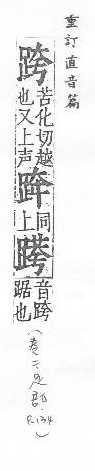 重訂直音篇
跨
苦化切越
也又上声
同
上
音跨
踞也
(卷二足部
P.134)